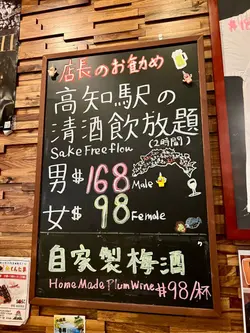 店長のお勧め
高知駅の
清酒飲放題
Sake Freeflow
(2時間)
男 $168 Male
女 $98 Female
自家製梅酒
Home Made Plum Wine $98/杯